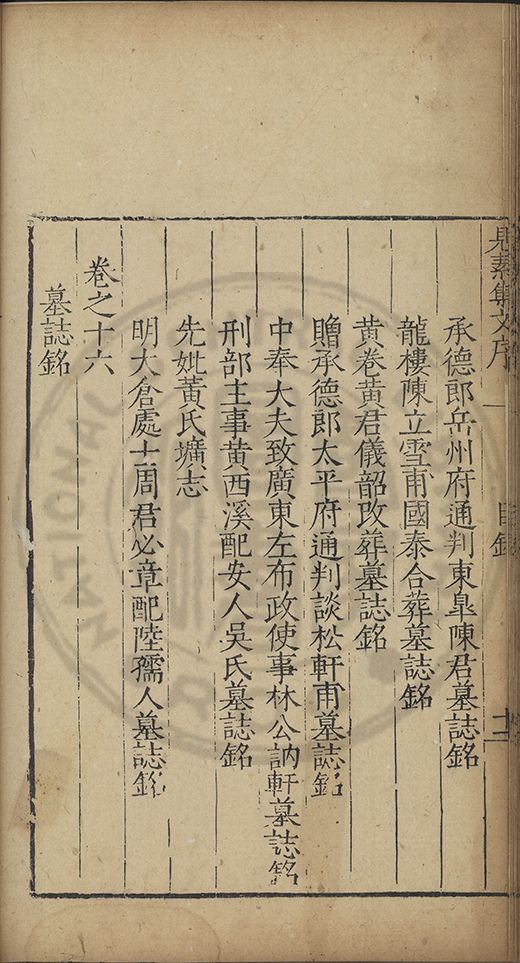 見素集文序
目錄
十二
承德郎岳州府通判東皐陳君墓誌銘
龍樓陳立雪甫國泰合葬墓誌銘
黄巷黄君儀韶改葬墓誌銘
贈承德郎太平府通判談松軒甫墓誌銘
中奉大夫致廣東左布政使事林公訥軒墓誌銘
刑部主事黄西溪配安人吳氏墓誌銘
先妣黃氏壙志
明大倉處士周君必章配陸孺人墓誌銘
卷之十六
墓誌銘